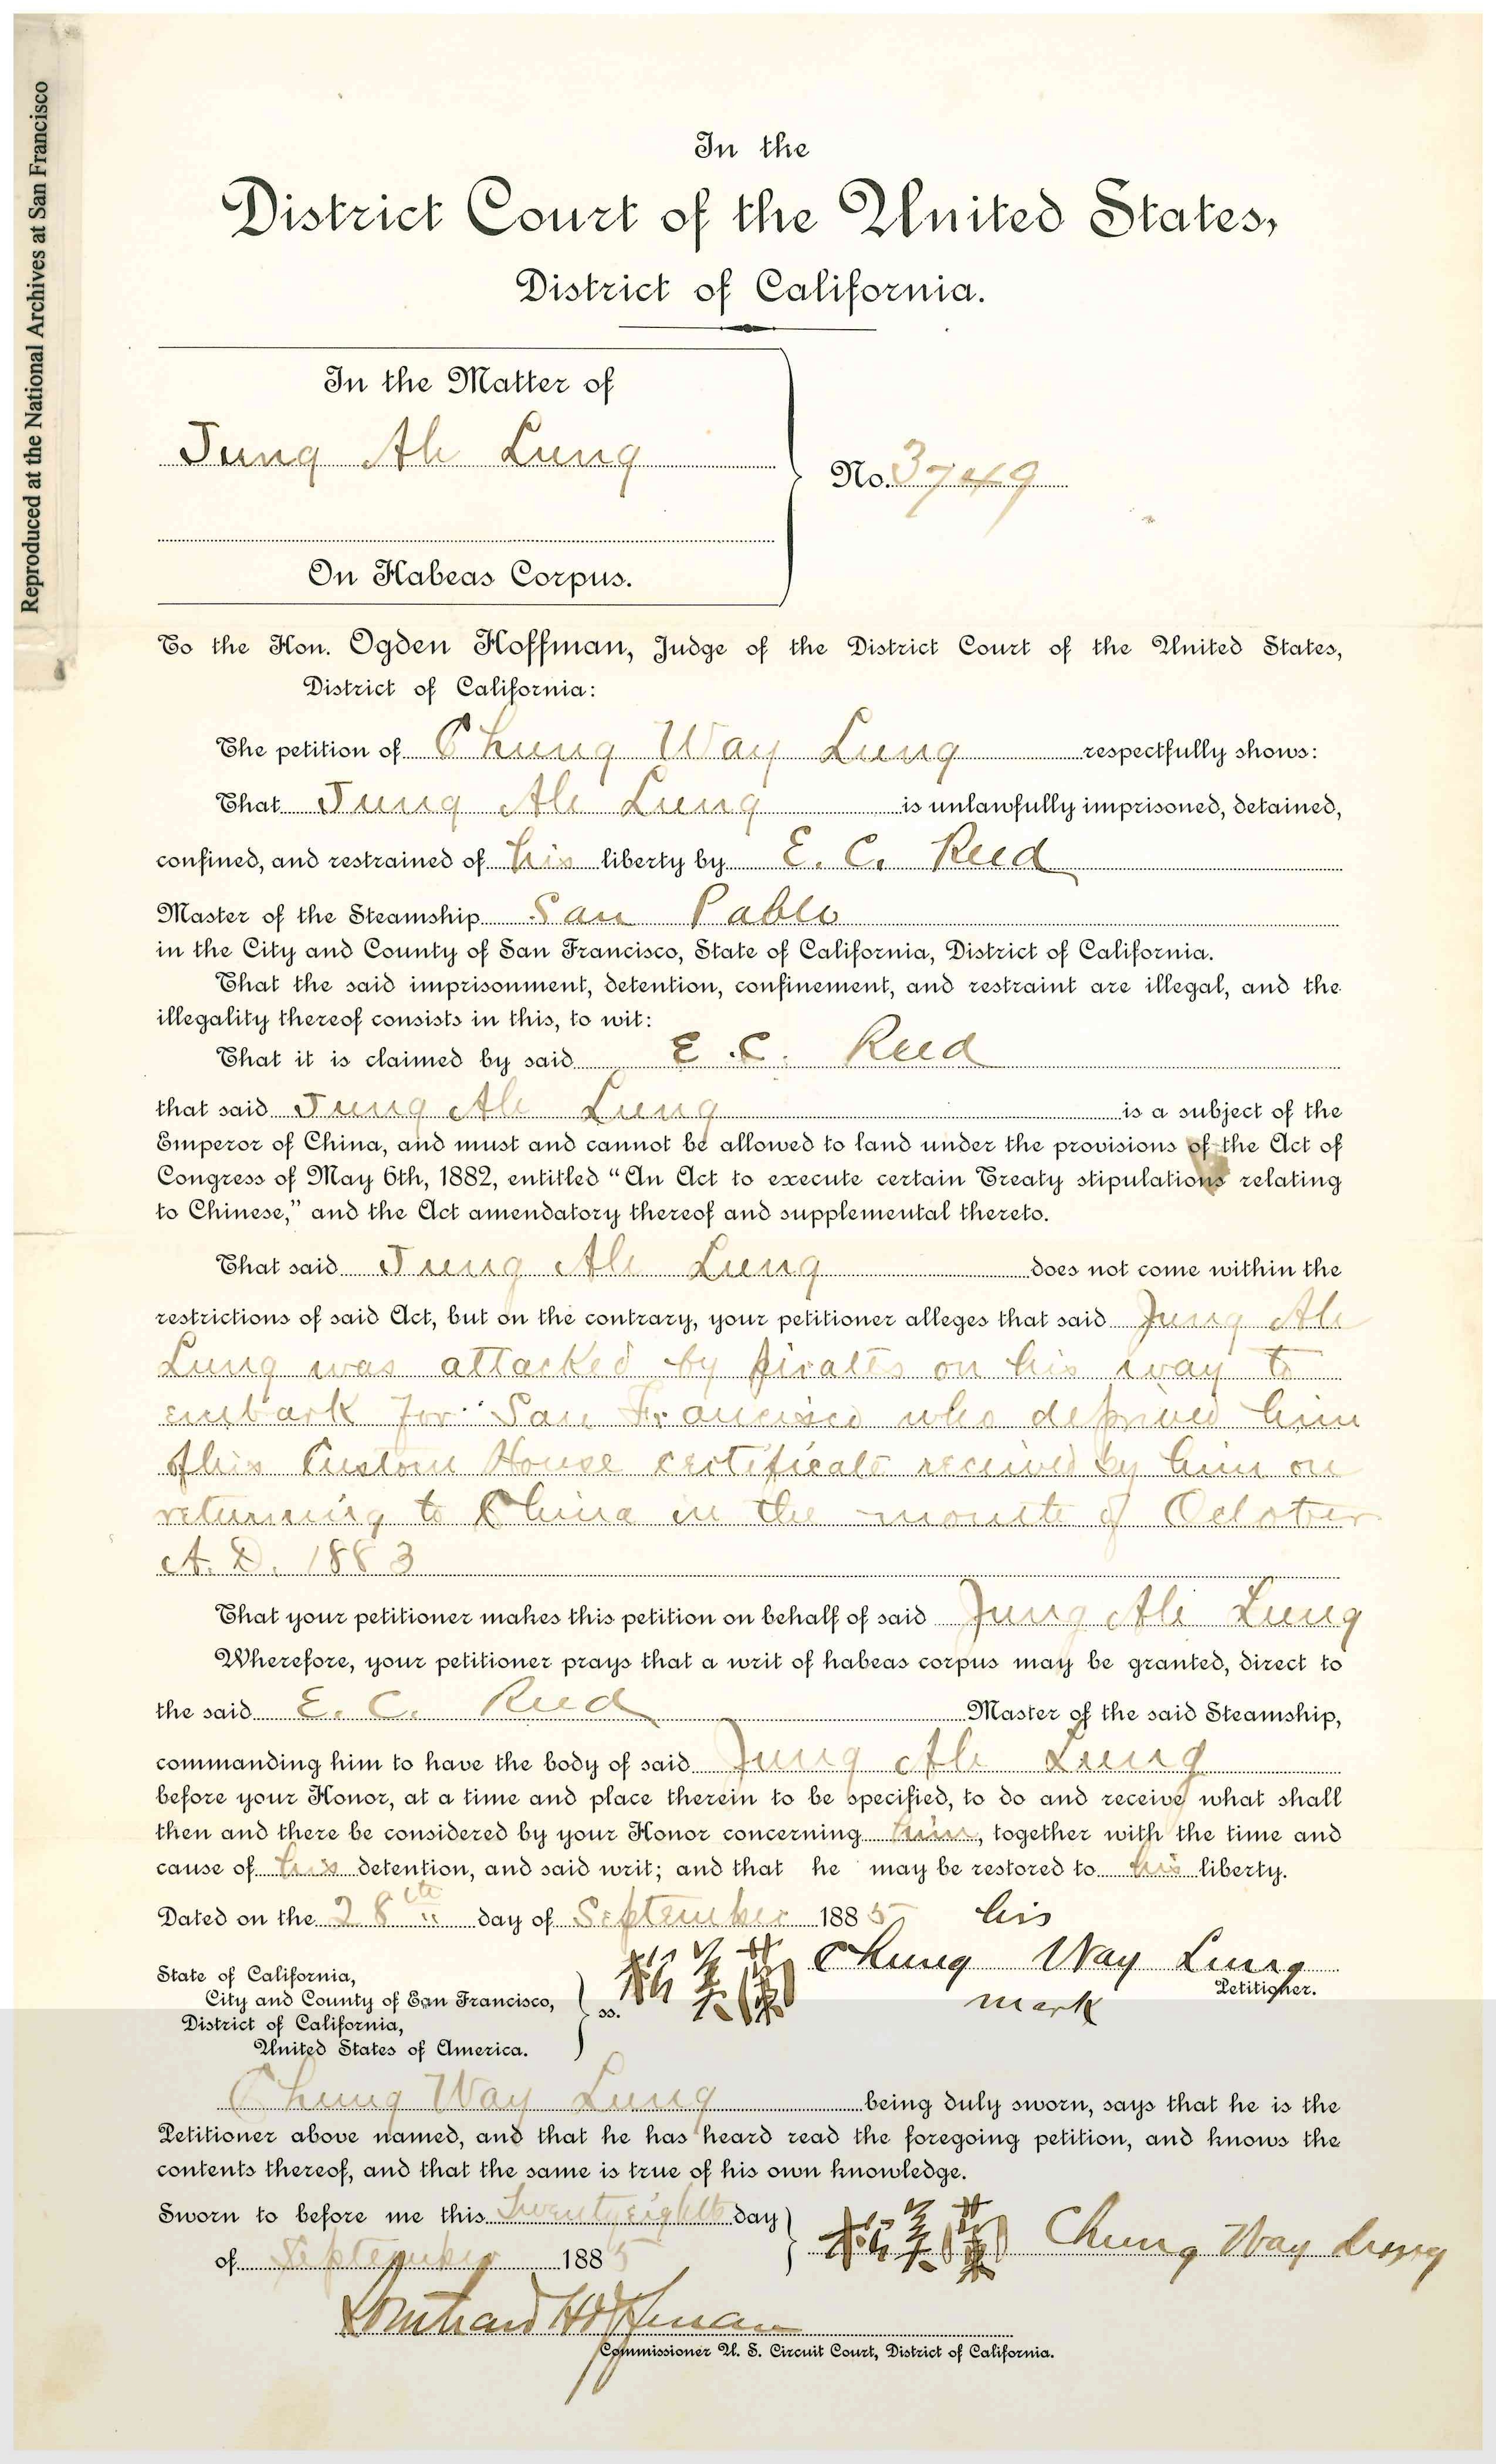 Reproduced at the National Archives at San Francisco
In the
District Court of the United States,
District of California.
In the Matter of
Jung Ah Lung
No. 3749
On Habeas Corpus.
To the Hon. Ogden Hoffman, Judge of the District Court of the United States,
District of California:
The petition of Chung Way Lung respectfully shows:
That Jung Ah Lung is unlawfully imprisoned, detained,
confined, and restrained of his liberty by E. C. Reed
Master of the Steamship San Pablo
in the City and County of San Francisco, State of California, District of California.
That the said imprisonment, detention, confinement, and restraint are illegal, and the
illegality thereof consists in this, to wit:
That it is claimed by said E. C. Reed
that said Jung Ah Lung is a subject of the
Emperor of China, and must and cannot be allowed to land under the provisions of the Act of
Congress of May 6th, 1882, entitled “An Act to execute certain Treaty stipulations relating
to Chinese,” and the Act amendatory thereof and supplemental thereto.
That said Jung Ah Lung does not come within the
restrictions of said Act, but on the contrary, your petitioner alleges that said Jung Ah
Lung was attacked by pirates on his way to
embark for San Francisco who deprived him
of his Custom House certificate received by him on
returning to China in the month of October
A. D. 1883
That your petitioner makes this petition on behalf of said Jung Ah Lung
Wherefore, your petitioner prays that a writ of habeas corpus may be granted, direct to
the said E. C. Reed Master of the said Steamship,
commanding him to have the body of said Jung Ah Lung
before your Honor, at a time and place therein to be specified, to do and receive what shall
then and there be considered by your Honor concerning him, together with the time and
cause of his detention, and said writ; and that he may be restored to his liberty.
Dated on the 28th day of September 1885 his
美蘭 Chung Way Lung
Petitioner.
mark
State of California,
City and County of San Francisco,
District of California,
United States of America.
ss.
Chung Way Lung being duly sworn, says that he is the
Petitioner above named, and that he has heard read the foregoing petition, and knows the
contents thereof, and that the same is true of his own knowledge.
Sworn to before me this Twenty eighth day
of September 1885
美蘭 Chung Way Lung
Hoffman
Commissioner U. S. Circuit Court, District of California.